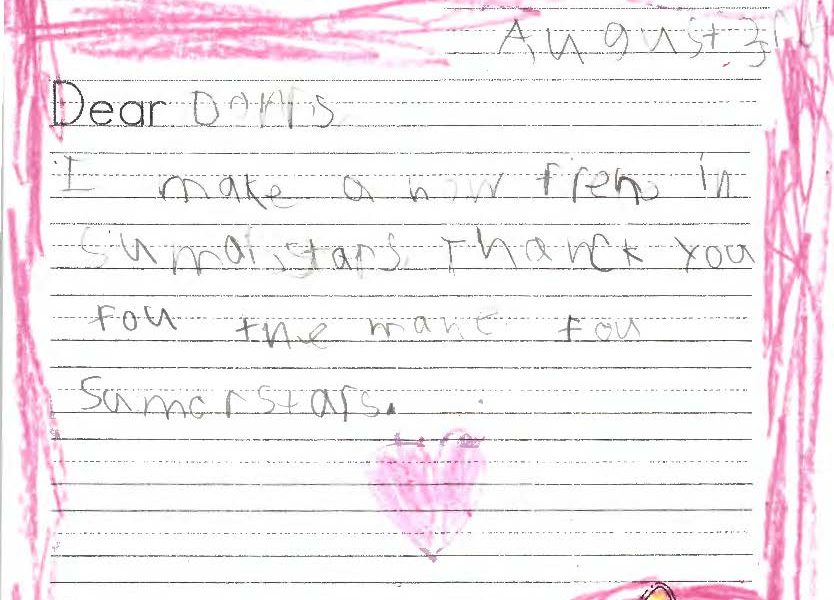 August 3rd
Dear Donrs
I make a now fren in
Sumarstars. Thanck you
fou the mane fou
Sumorstars.